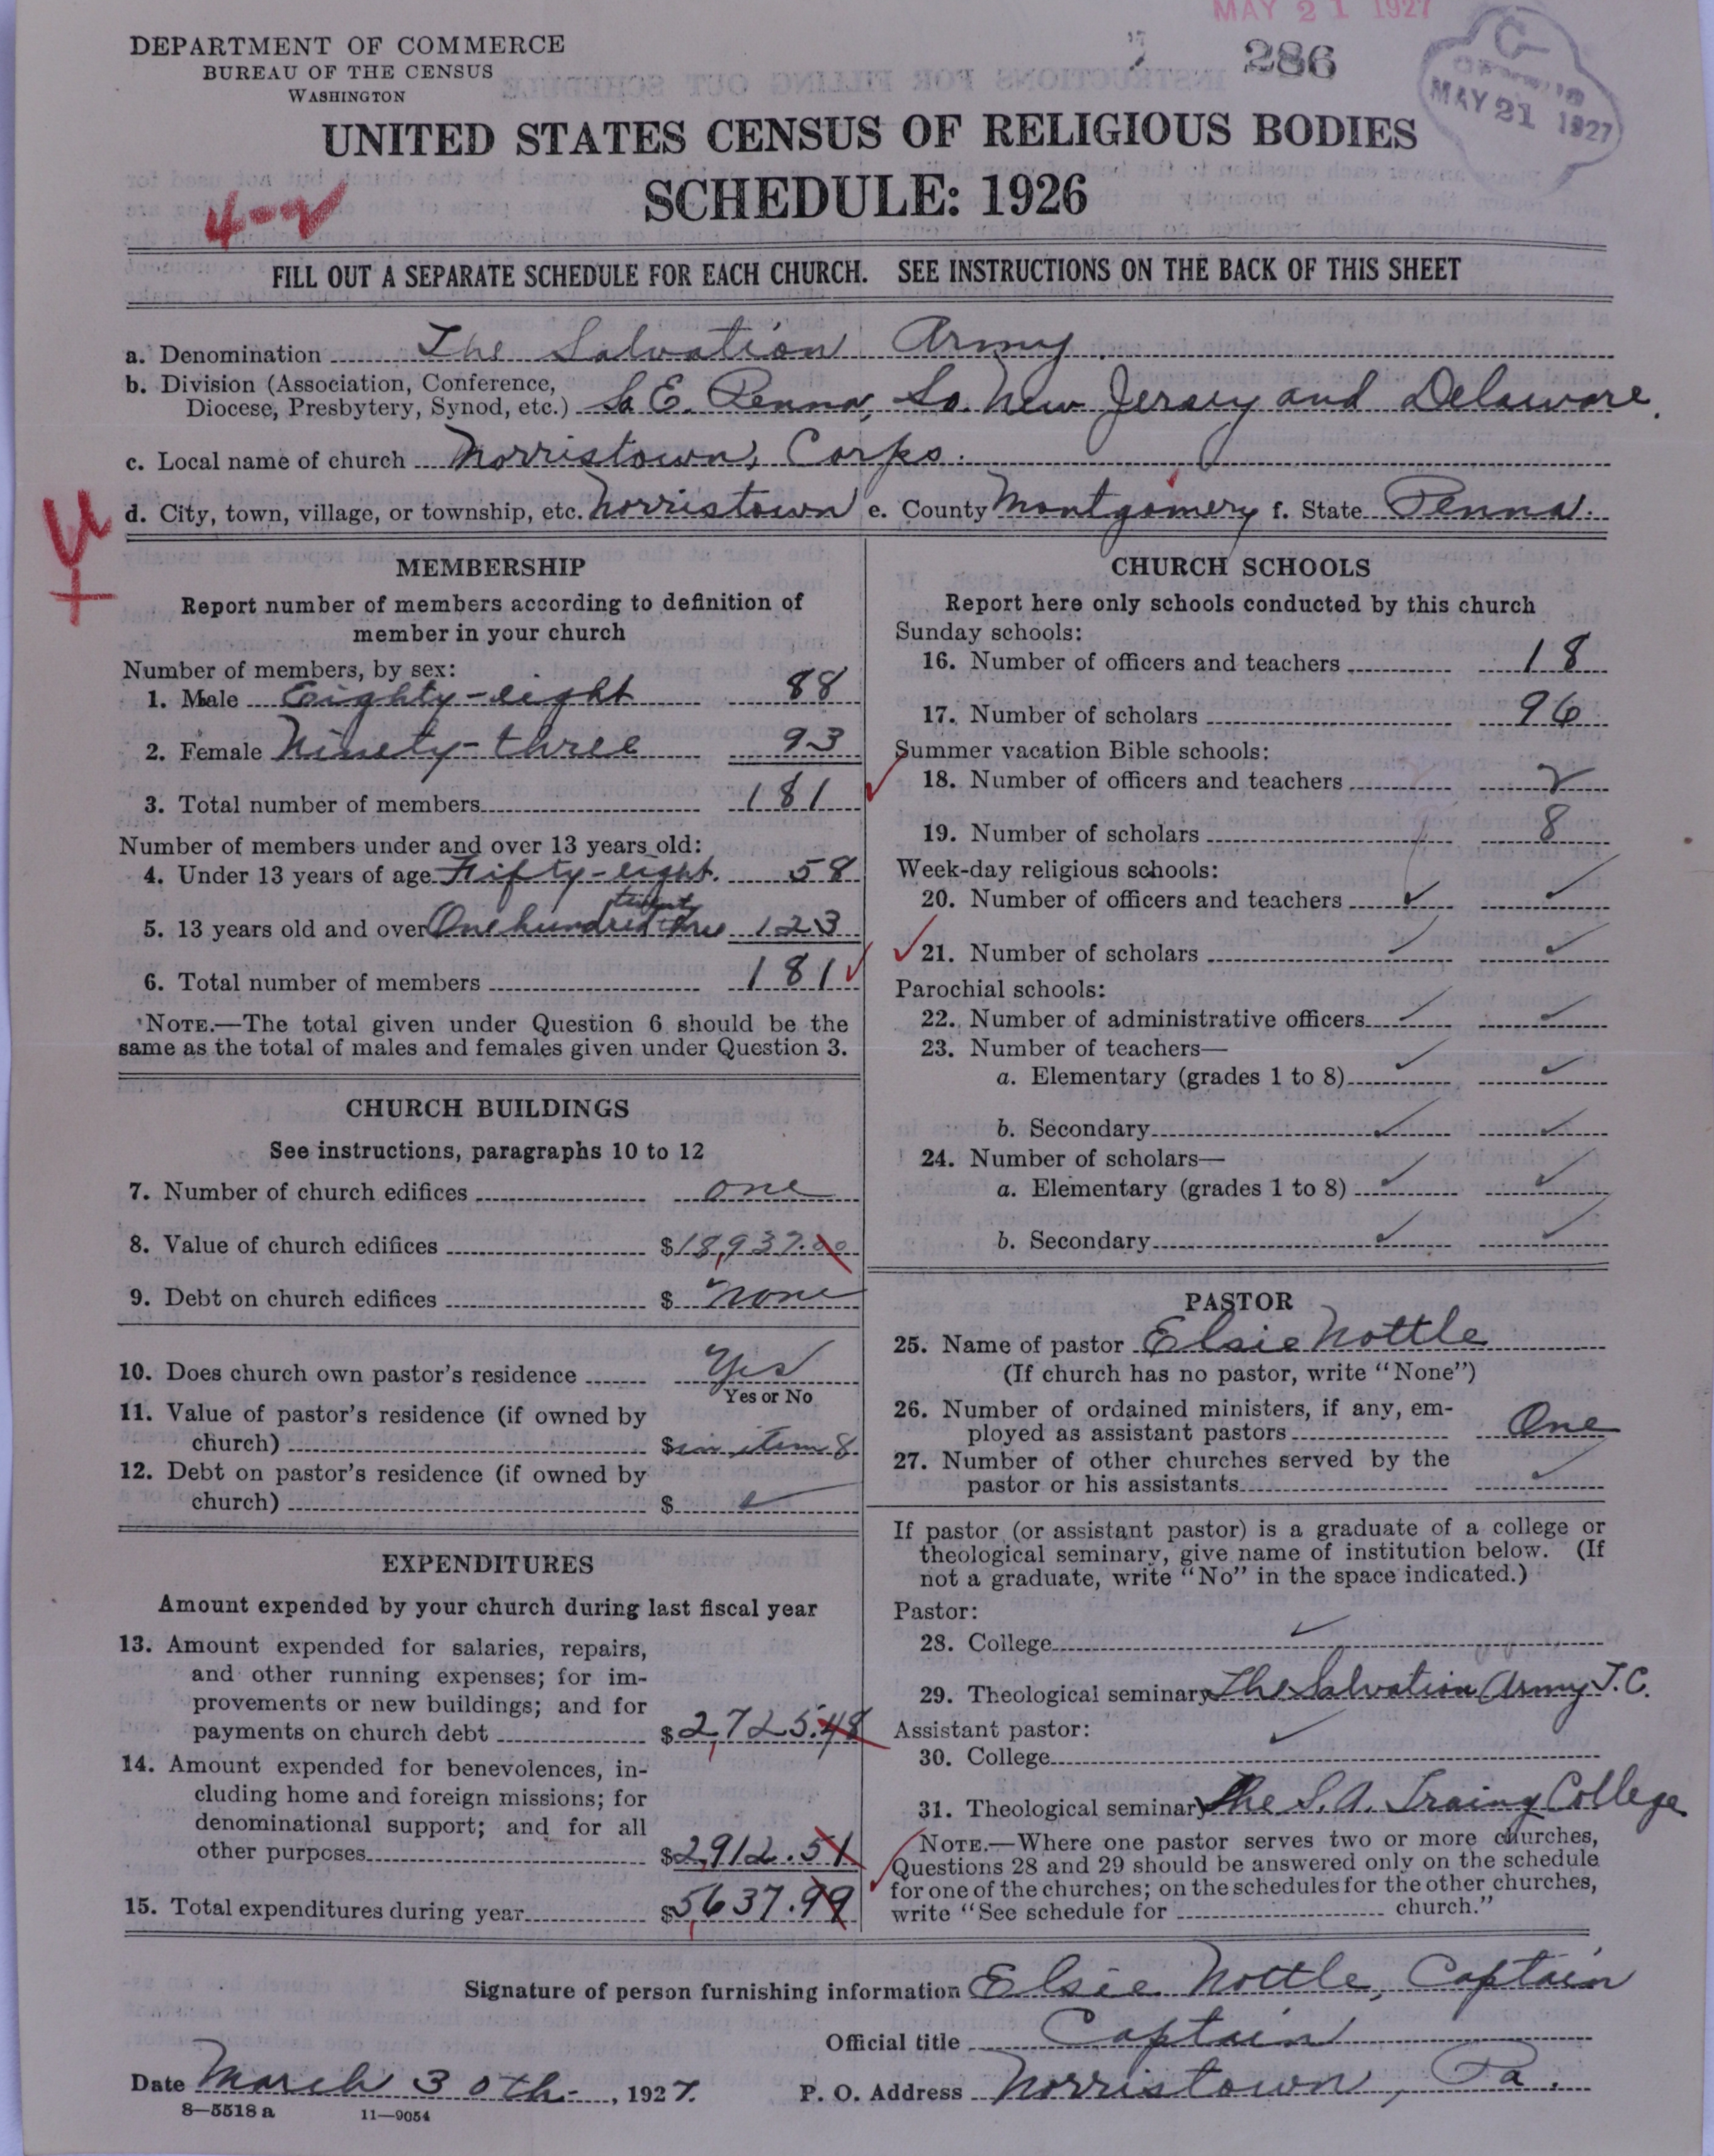 MAY 21 1927
DEPARTMENT OF COMMERCE
BUREAU OF THE CENSUS
WASHINGTON
286
MAY 21 1927
UNITED STATES CENSUS OF RELIGIOUS BODIES
SCHEDULE: 1926
4-2
FILL OUT A SEPARATE SCHEDULE FOR EACH CHURCH. SEE INSTRUCTIONS ON THE BACK OF THIS SHEET
a. Denomination The Salvation Army.
b. Division (Association, Conference,
Diocese, Presbytery, Synod, etc.) So E. Penna, So. New Jersey and Delaware.
c. Local name of church Norristown, Corps.
d. City, town, village, or township, etc. Norristown e. County Montgomery f. State Penna.
MEMBERSHIP
Report number of members according to definition of
member in your church
Number of members, by sex:
1. Male Eighty-eight 88
2. Female Ninety-three 93
3. Total number of members 181
Number of members under and over 13 years old:
4. Under 13 years of age Fifty-eight. 58
5. 13 years old and over One hundred twenty three 123
6. Total number of members 181
NOTE.—The total given under Question 6 should be the
same as the total of males and females given under Question 3.
CHURCH BUILDINGS
See instructions, paragraphs 10 to 12
7. Number of church edifices one
8. Value of church edifices $18,937.00
9. Debt on church edifices $ none
10. Does church own pastor's residence Yes
Yes or No
11. Value of pastor's residence (if owned by
church) $ in item 8.
12. Debt on pastor's residence (if owned by
church) $ ✓
EXPENDITURES
Amount expended by your church during last fiscal year
13. Amount expended for salaries, repairs,
and other running expenses; for im-
provements or new buildings; and for
payments on church debt $2,725.48
14. Amount expended for benevolences, in-
cluding home and foreign missions; for
denominational support; and for all
other purposes $2,912.51
15. Total expenditures during year $5,637.99
CHURCH SCHOOLS
Report here only schools conducted by this church
Sunday schools:
16. Number of officers and teachers 18
17. Number of scholars 96
Summer vacation Bible schools:
18. Number of officers and teachers 2
19. Number of scholars 8
Week-day religious schools:
20. Number of officers and teachers ✓ ✓
21. Number of scholars ✓ ✓
Parochial schools:
22. Number of administrative officers ✓ ✓
23. Number of teachers—
a. Elementary (grades 1 to 8) ✓ ✓
b. Secondary ✓ ✓
24. Number of scholars—
a. Elementary (grades 1 to 8) ✓ ✓
b. Secondary ✓ ✓
PASTOR
25. Name of pastor Elsie Nottle
(If church has no pastor, write "None")
26. Number of ordained ministers, if any, em-
ployed as assistant pastors One
27. Number of other churches served by the
pastor or his assistants ✓
If pastor (or assistant pastor) is a graduate of a college or
theological seminary, give name of institution below. (If
not a graduate, write "No" in the space indicated.)
Pastor:
28. College ✓
29. Theological seminary The Salvation Army T.C.
Assistant pastor:
30. College ✓
31. Theological seminary The S.A. Traing College
NOTE.—Where one pastor serves two or more churches,
Questions 28 and 29 should be answered only on the schedule
for one of the churches; on the schedules for the other churches,
write "See schedule for church."
Signature of person furnishing information Elsie Nottle, Captain
Official title Captain
Date March 30th , 1927. P. O. Address Norristown, Pa.
8—5518a 11—9054